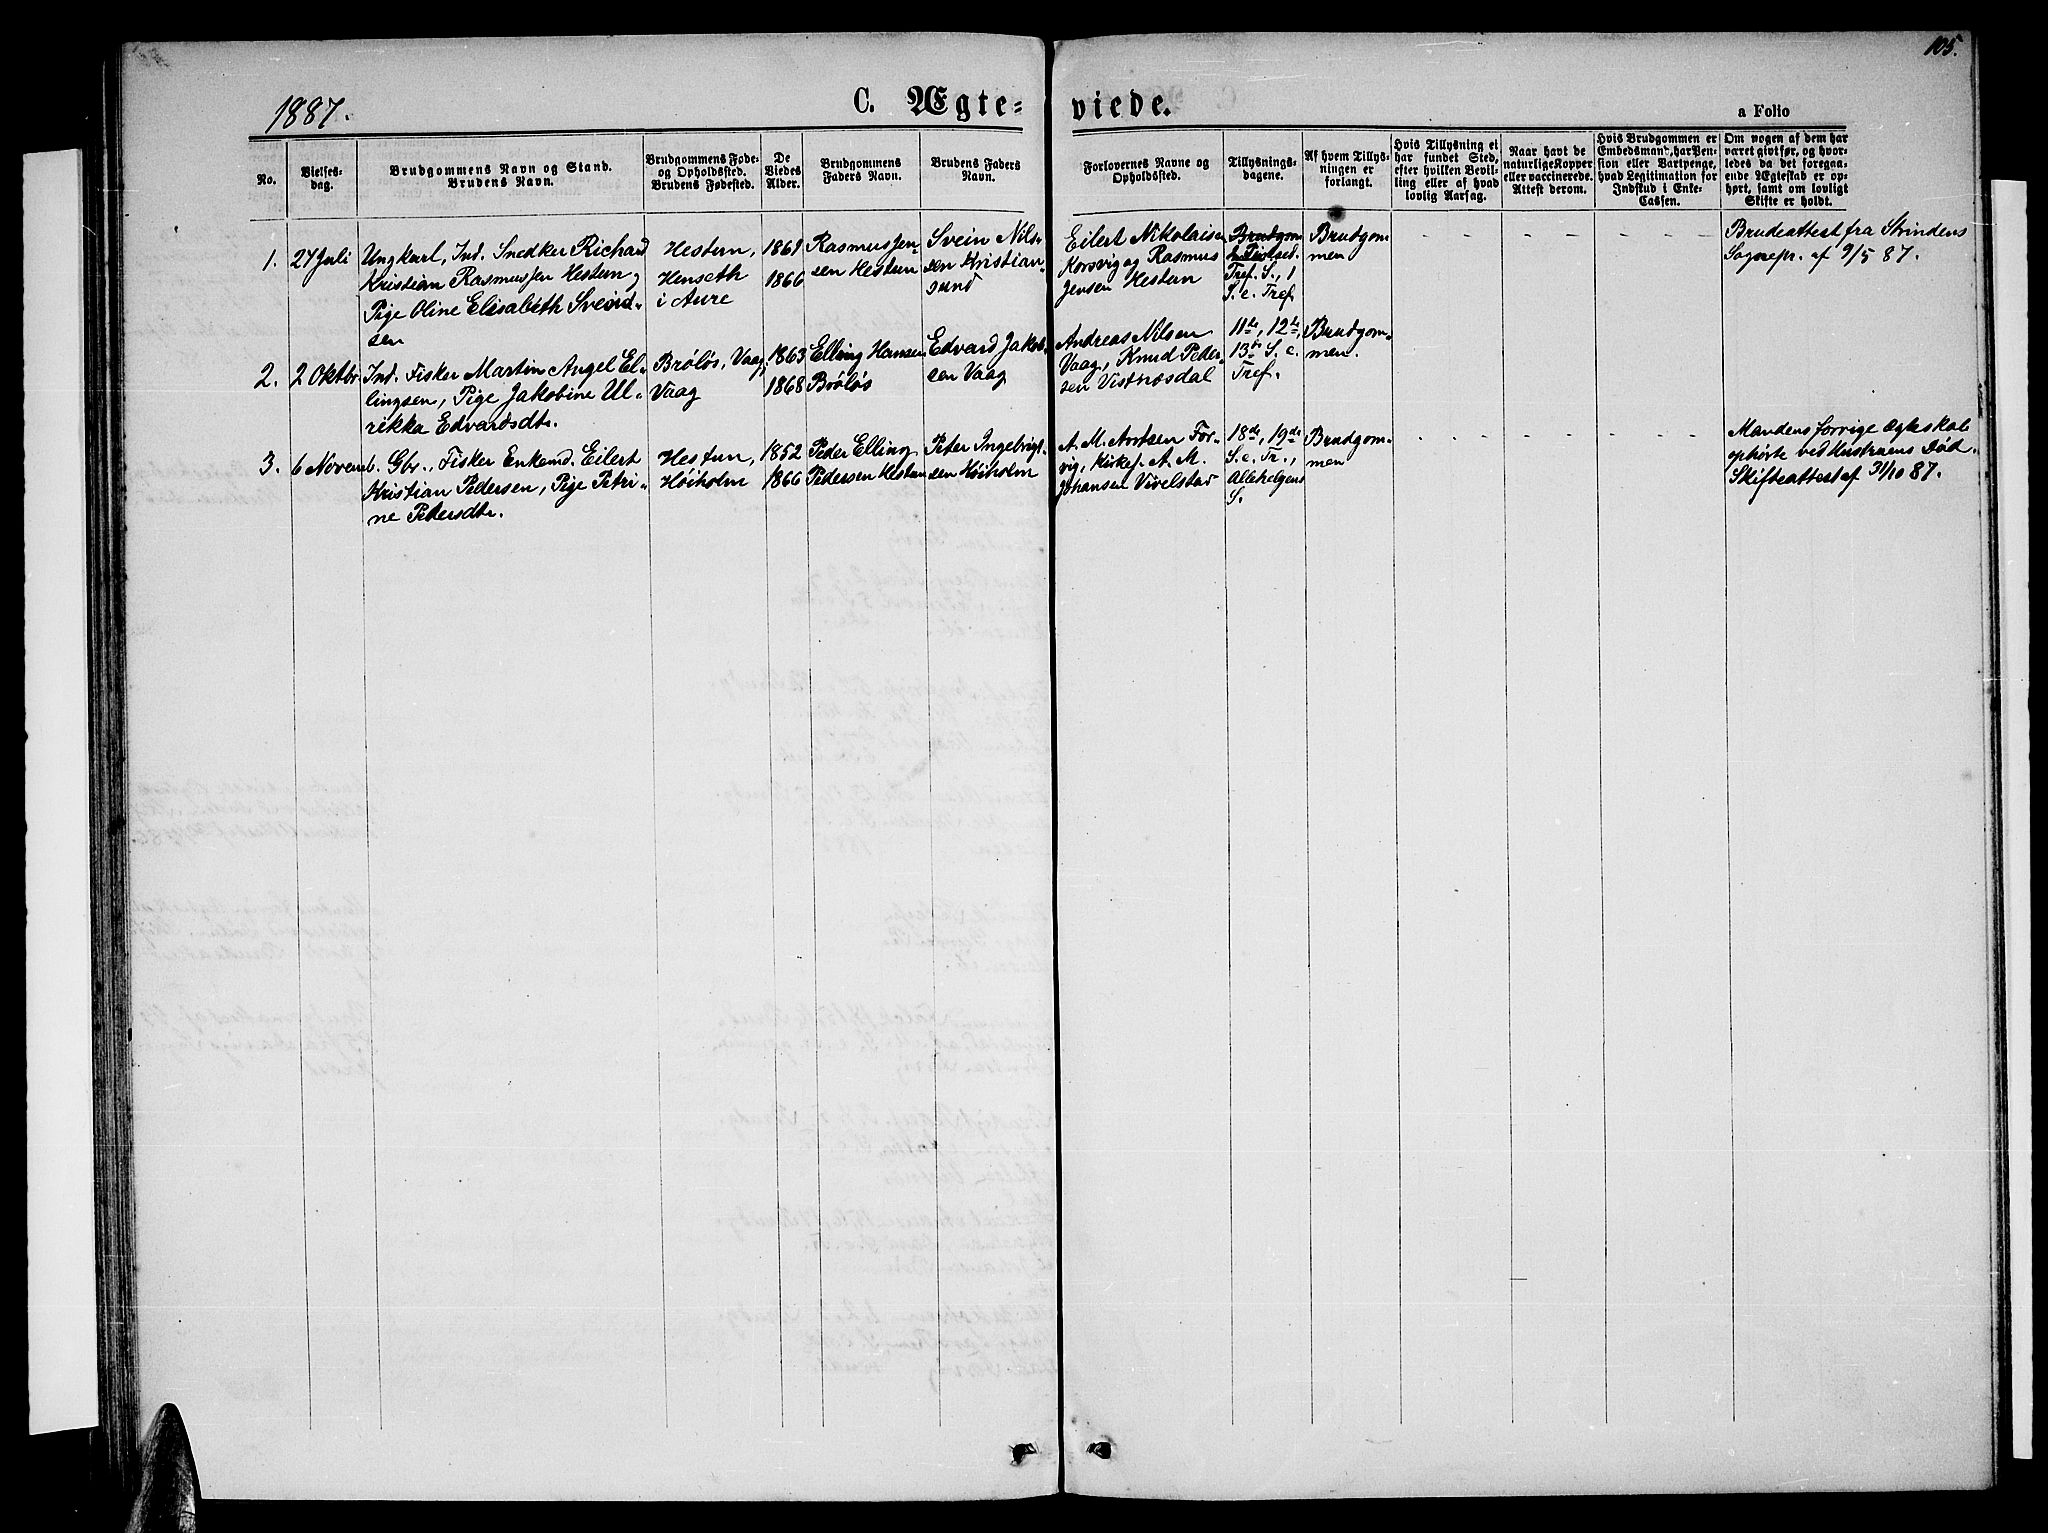 105.
1887.
C. Ægte-
viede.
a Folio
No.
Vielses-
dag.
Brudgommens Navn og Stand.
Brudens Navn.
Brudgommens Føde-
og Opholdssted.
Brudens Fødested.
De
Viedes
Alder.
Brudgommens
Faders Navn.
Brudens Faders
Navn.
Forlovernes Navne og
Opholdssted.
Tillysnings-
dagene.
Af hvem Tillys-
ningen er
forlangt.
Hvis Tillysning ei
har fundet Sted,
efter hvilken Bevil-
ling eller af hvad
lovlig Aarsag.
Naar havt de
naturlige Kopper
eller vaccinerede.
Attest derom.
Hvis Brudgommen er
Embedsmand, har Pen-
sion eller Vartpenge,
hvad Legitimation for
Indskud i Enke-
Cassen.
Om nogen af dem har
været givtfør, og hvor-
ledes da det foregaa-
ende Ægteskab er op-
hørt, samt om lovligt
Skifte er holdt.
1.
24 Juli
Ungkarl, Ind. Snedker Richard
Kristian Rasmussen Hestun,
Pige Oline Elisabeth Svend-
sen
Hestun,
Henseth
i Aure
1861
1866
Rasmus Jen-
sen Hestun
Svein Nils-
sen Kristian-
sund
Eilert Nikolaisen
Korsvig og Rasmus
Jensen Hestun
Tref. S., 1
S. e. Tref
Brudgom-
men
Brudeattest fra Strindens
Sognepr. af 9/5 87.
2.
2 Oktbr.
Ind. Fisker Martin Angel El-
lingsen, Pige Jakobine Ul-
rikka Edvardsdtr.
Brøløs, Vaag,
Vaag
1863
1868
Elling Hansen
Brøløs
Edvard Jakob-
sen Vaag
Andreas Nilsen
Vaag, Knud Peder-
sen Vistnæsdal
11te, 12te,
13de S. e.
Tref.
Brudgom-
men.
3.
6 Novemb.
Gbr., Fisker Enkemd. Eilert
Kristian Pedersen, Pige Petri-
ne Petersdtr.
Hestun,
Høiholm
1852
1866
Peder Elling
Pedersen Hestun
Peter Ingebrigt-
sen Høiholm
A. M. Arntsen For-
vig, Kirkes. A. M.
Johansen Vivelstad
18de, 19de
S. e. Tr.,
Allehelgens
S.
Brudgom-
men
Mandens forrige Ægteskab
ophørte ved Hustruens Død.
Skifteattest af 31/10 87.